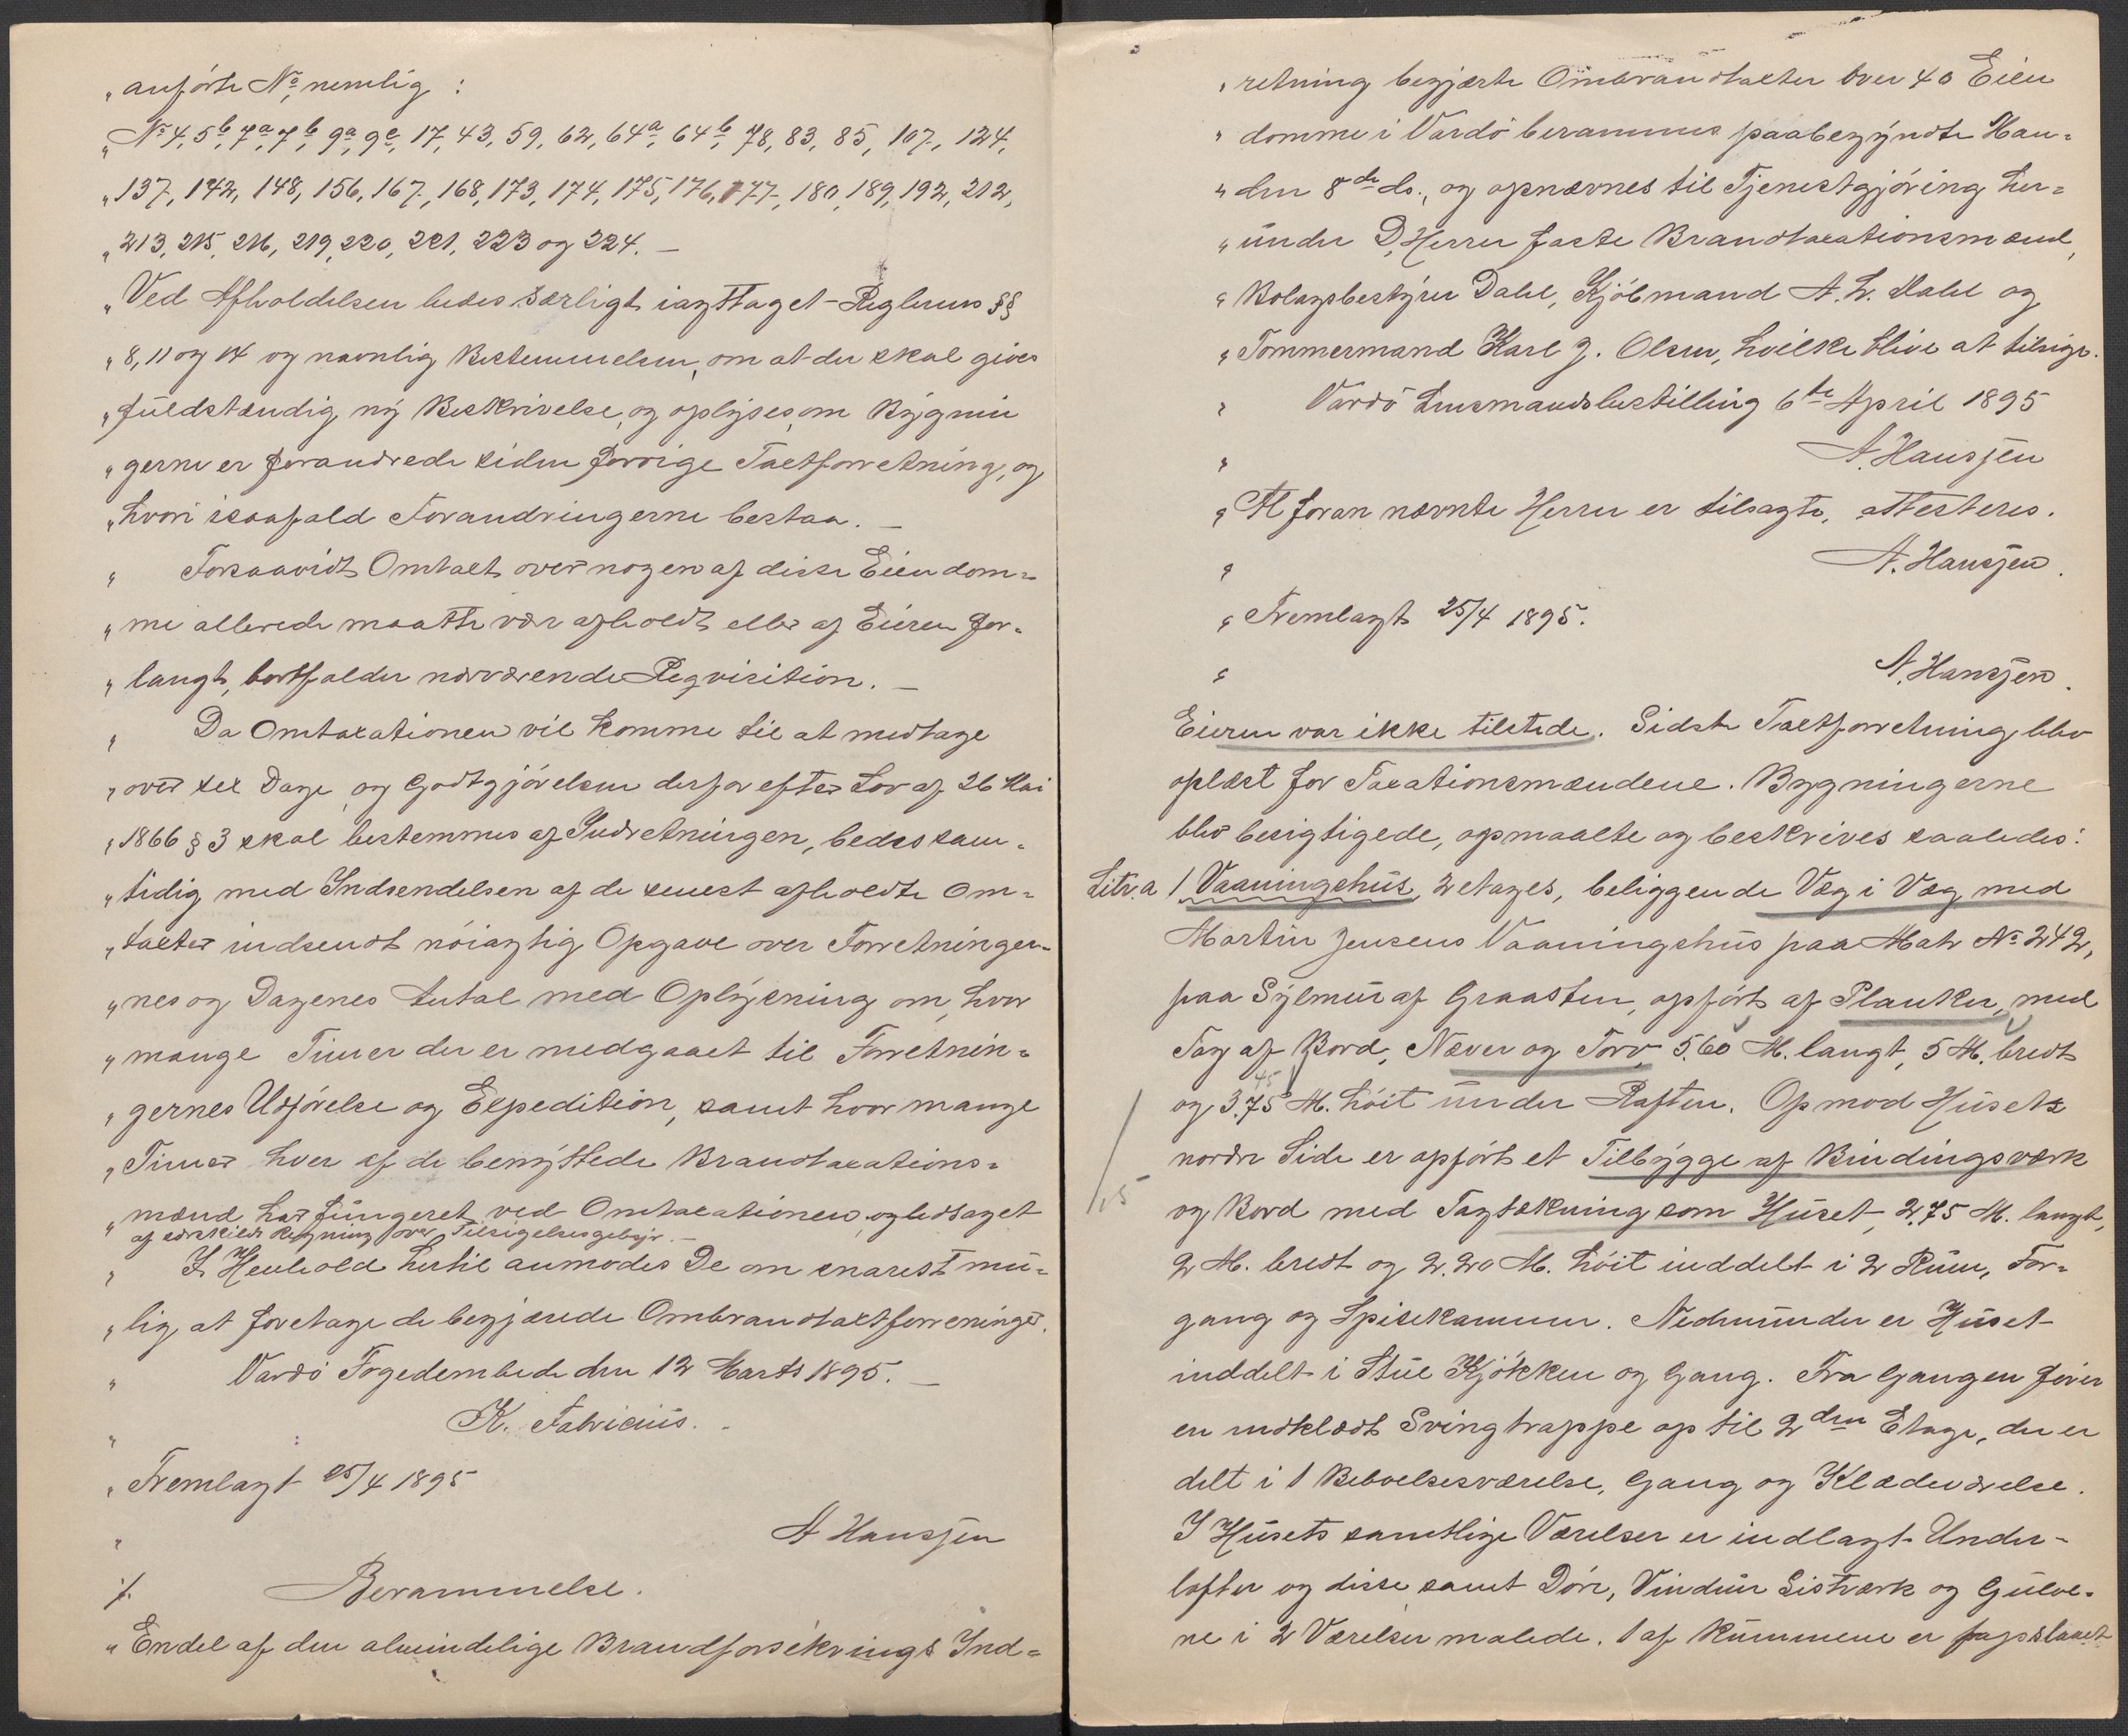 „anførte No, nemlig:
„No 4, 5b, 7a, 7b, 9a, 9c, 17, 43, 59, 62, 64a, 64b, 78, 83, 85, 107, 124,
„137, 142, 148, 156, 167, 168, 173, 174, 175, 176, 177, 180, 189, 192, 212,
„213, 215, 216, 219, 220, 221, 223 og 224. —
„Ved Afholdelsen bedes særligt iagttaget Reglernes §§
„8, 11 og 14 og navnlig Bestemmelsen, om at der skal gives
„fuldstændig ny Beskrivelse, og oplyses, om Bygnin
„gerne er forandrede siden forrige Taxtforretning, og
„hvori isaafald Forandringerne bestaa. —
„ Forsaavidt Omtaxt over nogen af disse Eiendom=
„me allerede maatte være afholdt eller af Eieren for=
„langt, bortfalder nærværende Reqvisition. —
„ Da Omtaxationen vil komme til at medtage
„over sex Dage, og Godtgjørelsen derfor efter Lov af 26 Mai
„1866 § 3 skal bestemmes af Indretningen, bedes sam=
„tidig med Indsendelsen af de senest afholdte Om=
„taxter indsendt nøiagtig Opgave over Forretninger=
„nes og Dagenes Antal med Oplysning om, hvor
„mange Timer der er medgaaet til Forretnin=
„gernes Udførelse og Expedition, samt hvor mange
„Timer hver af de benyttede Brandtaxations=
„mænd har fungeret ved Omtaxationen, ogledsaget
af særskildt Regning over Tilsigelsesgebyr. —
„ I Henhold hertil anmodes De om snarest mu=
„lig, at foretage de begjærede Ombrandtaxtforreninger.
„ Vardø Fogedembede den 12 Marts 1895. —
„ K. Fabricius.
„Fremlagt 25/4 1895
„ A Hanssen
·/. Berammelse.
„Endel af den almindelige Brandforsikrings Ind=
„retning begjærte Ombrandtaxter over 40 Eien
„domme i Vardø berammes paabegyndte Man=
„den 8de ds., og opnævnes til Tjenestgjøring her=
„under D'Herrer faste Brandtaxationsmænd,
„Bolagsbestyrer Dahl, Kjøbmand A. L. Dahl og
„Tømmermand Karl J. Olsen, hvilke blive at tilsige.
„ Vardø Lensmandsbestilling 6te April 1895
„ A. Hanssen
„At foran nævnte Herrer er tilsagte, attesteres.
„ A. Hanssen.
„Fremlagt 25/4 1895.
„ A. Hanssen.
Eieren var ikke tilstede. Sidste Taxtforretning blev
oplæst for Taxationsmændene. Bygningerne
blev besigtigede, opmaalte og beskrives saaledes:
Litr. a 1 Vaaningshus, 2 etages, beliggende Væg i Væg med
Martin Jensens Vaaningshus paa Matr No 242,
paa Sylmur af Graasten, opført af Planker, med
Tag af Bord, Næver og Torv, 5.60 M. langt, 5 M. bredt
45
og 3.75 M. høit under Raften. Op mod Husets
nordre Side er opført et Tilbygge af Bindingsværk
1,5
og Bord med Tagtækning som Huset, 2,75 M. langt,
2 M. bredt og 2.20 M. høit inddelt i 2 Rum, For=
gang og Spisekammer. Nedenunder er Huset
inddelt i Stue Kjøkken og Gang. Fra Gangen fører
en indklædt Svingtrappe op til 2den Etage, der er
delt i 1 Beboelsesværelse, Gang og Klædeværelse.
I Husets samtlige Værelser er indlagt Under-
lofter og disse samt Døre, Vinduer Listværk og Gulve=
ne i 2 Værelser malede. 1 af Rummene er papslaaet